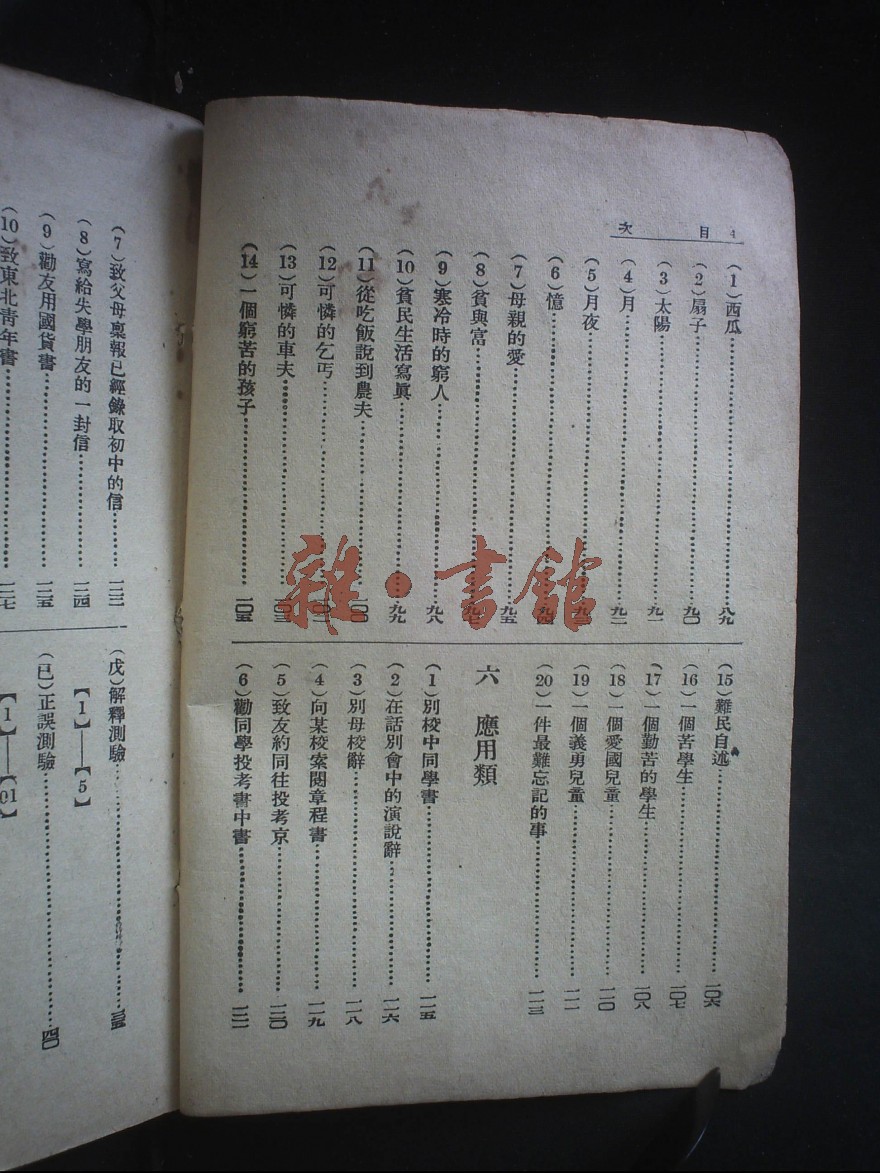 目次
(1)西瓜……八九
(2)扇子……九〇
(3)太陽……九一
(4)月……九二
(5)月夜……九三
(6)憶……九四
(7)母親的愛……九五
(8)貧與富……九七
(9)寒冷時的窮人……九八
(10)貧民生活寫眞……九九
(11)從吃飯說到農夫……一〇〇
(12)可憐的乞丐
(13)可憐的車夫……一〇三
(14)一個窮苦的孩子……一〇五
(15)難民自述……一〇六
(16)一個苦學生……一〇七
(17)一個勤苦的學生……一〇八
(18)一個愛國兒童……一一〇
(19)一個義勇兒童……一一一
(20)一件最難忘記的事……一一三
六 應用類
(1)別校中同學書……一一五
(2)在話別會中的演說辭……一一六
(3)別母校辭……一一八
(4)向某校索閱章程書……一一九
(5)致友約同往投考京……一二〇
(6)勸同學投考書中書……一二一
(7)致父母稟報已經錄取初中的信……一二三
(8)寫給失學朋友的一封信……一二四
(9)勸友用國貨書……一二五
(10)致東北靑年書……一二七
(戊)解釋測驗……三五
【1】——【5】
(已)正誤測驗……四〇
【1】——【
雜·書館